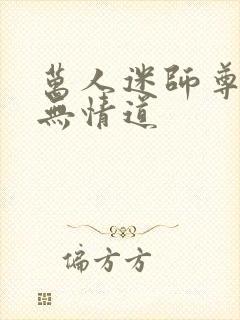 萬人迷師尊
無情道
偏方方